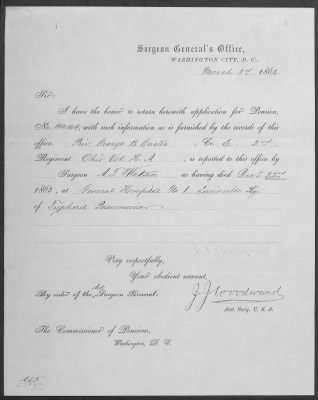 Surgeon General's Office,
WASHINGTON CITY, D. C.,
March 3rd, 1864
Sir:
I have the honor to return herewith application for Pension,
No. with such information as is furnished by the records of this
office. Priv George B. Carter, Co. C. 2nd
Regiment Ohio Vol. H. A. is reported to this office by
Surgeon A. J. as having died Dec. 22nd
1863, at General Hospital No 1. Louisville Ky.
of Typhoid Pneumonia
Very respectfully,
Your obedient servant,
By order of the Surgeon General:
J. J. Woodward
Ast. Surg. U. S. A.
The Commissioner of Pensions,
Washington, D. C.